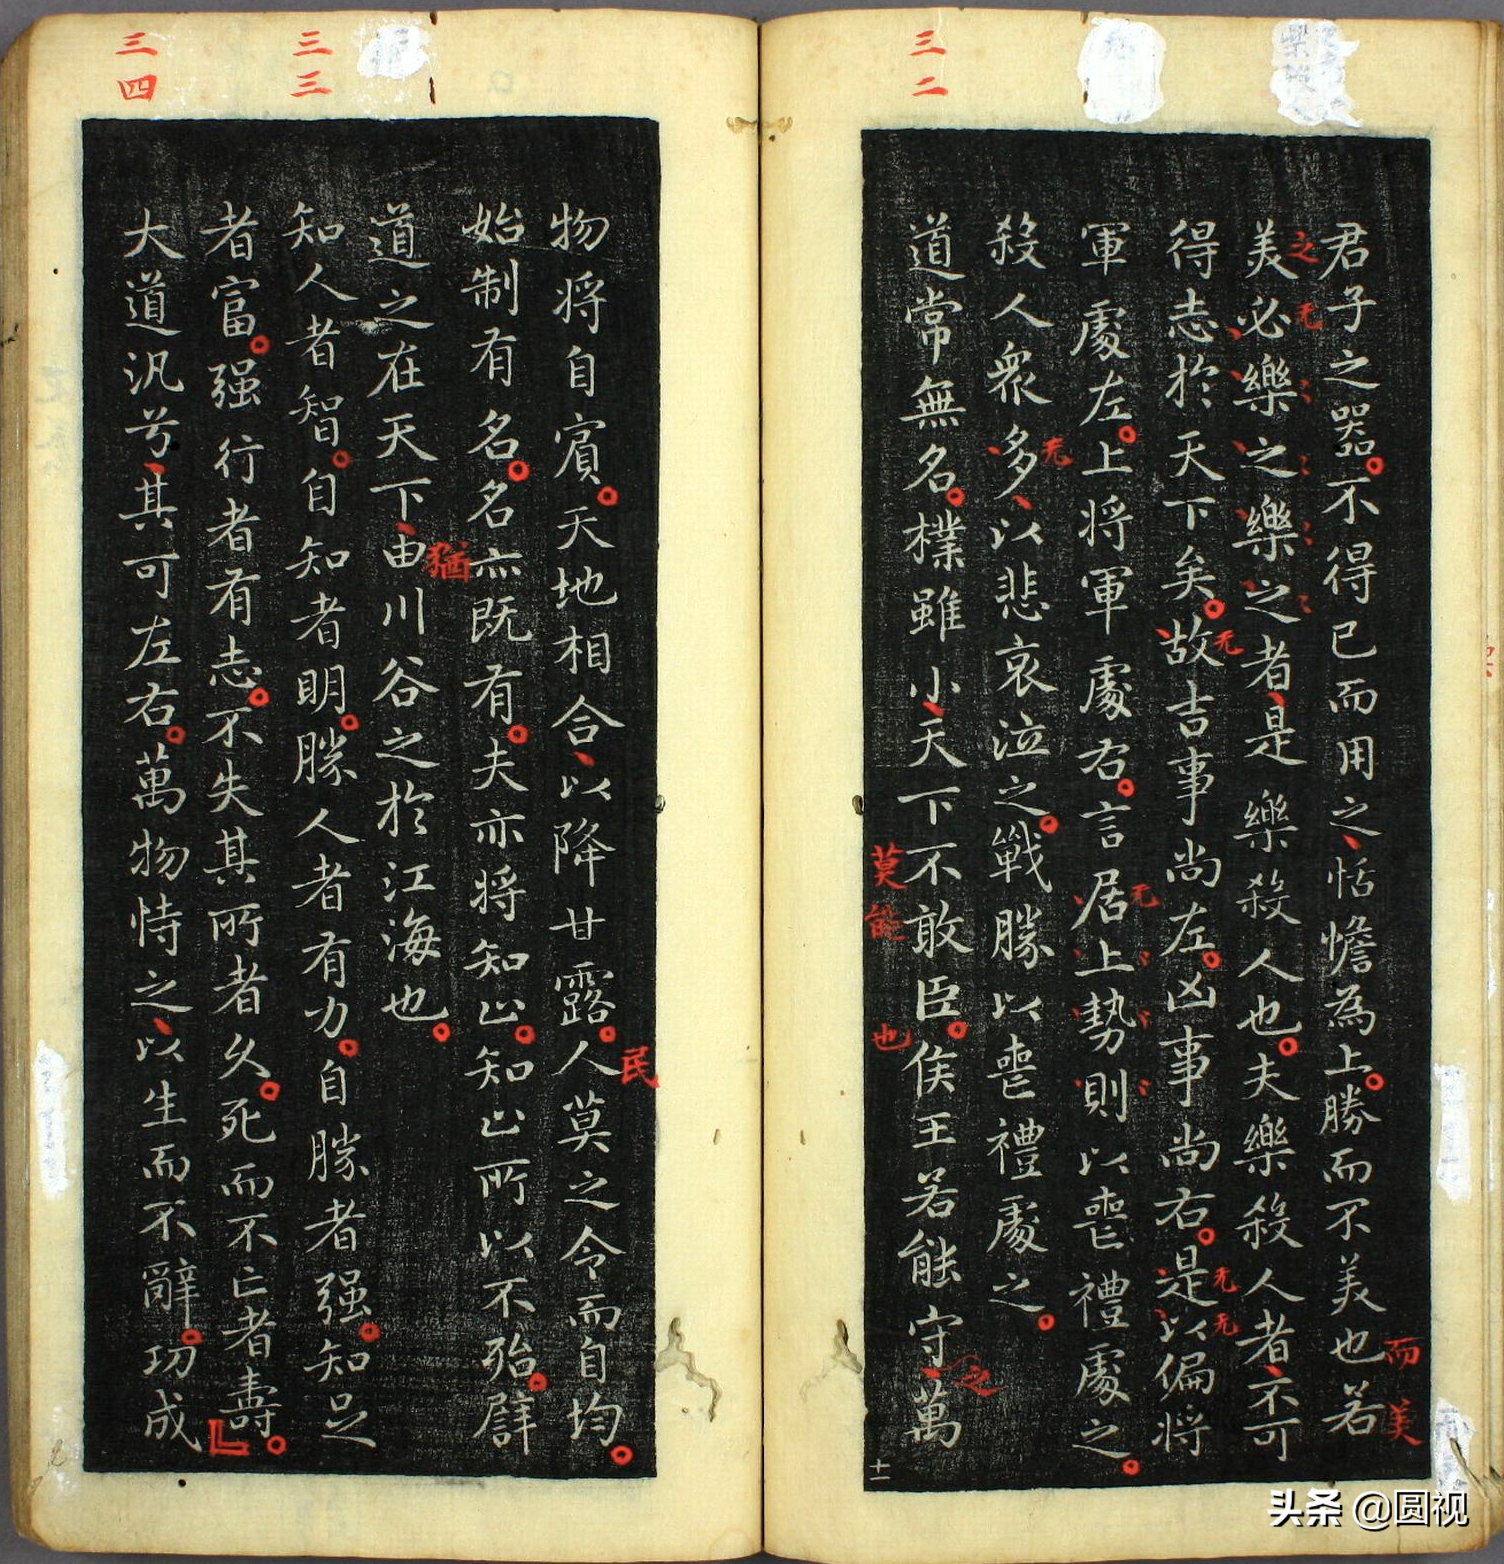 三二
君子之器不得已而用之恬憺為上勝而不美也若
美必樂之樂之者是樂殺人也夫樂殺人者不可
得志於天下矣故吉事尚左凶事尚右是以偏将
軍處左上将軍處右言居上勢則以喪禮處之
殺人衆多以悲哀泣之戰勝以喪禮處之
道常無名樸雖小天下不敢臣侯王若能守萬
而美
之
无
无
无
无
无
无
莫能
也
之
十一
三三
三四
物将自賓天地相合以降甘露人莫之令而自均
始制有名名亦既有夫亦将知止知止所以不殆譬
道之在天下由川谷之於江海也
知人者智自知者明勝人者有力自勝者强知足
者富强行者有志不失其所者久死而不亡者壽
大道汎兮其可左右萬物恃之以生而不辭功成
民
猶
头条 @圆视